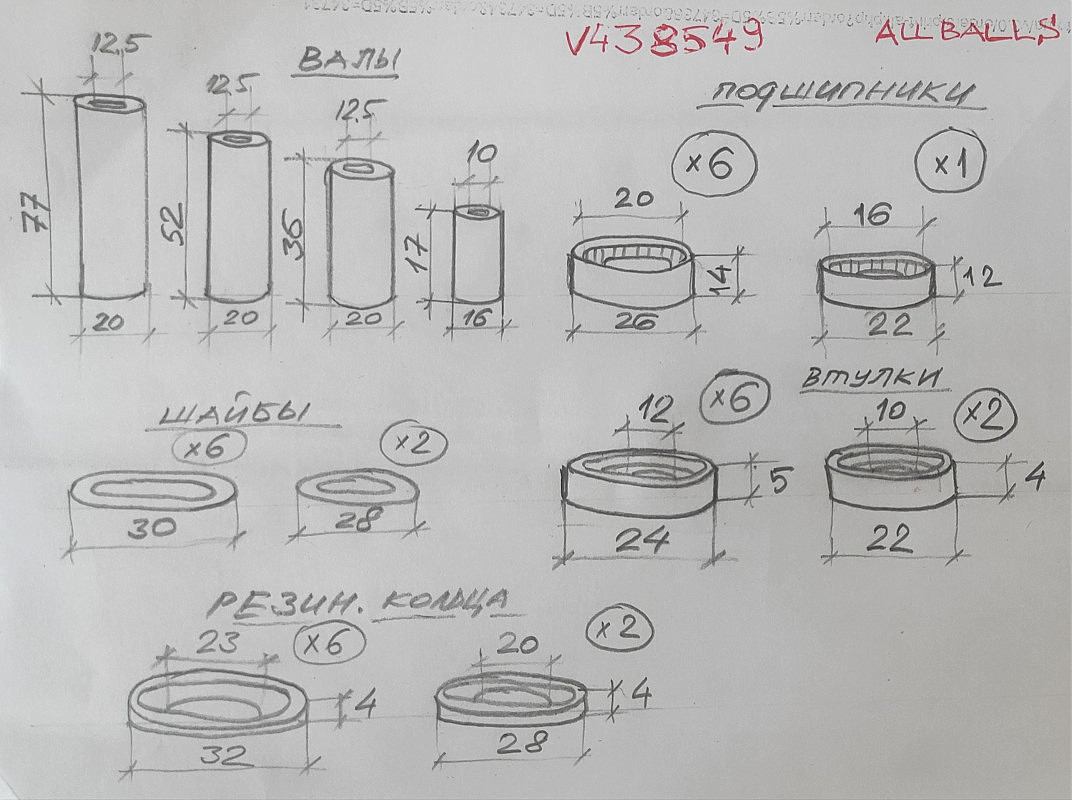 V438549 ALLBALLS
ВАЛЫ
12,5
12,5
12,5
10
77
52
36
17
20
20
20
16
ПОДШИПНИКИ
×6
×1
20
16
14
12
26
22
ШАЙБЫ
×6
×2
30
28
ВТУЛКИ
×6
×2
12
10
5
4
24
22
РЕЗИН. КОЛЬЦА
×6
×2
23
20
4
4
32
28